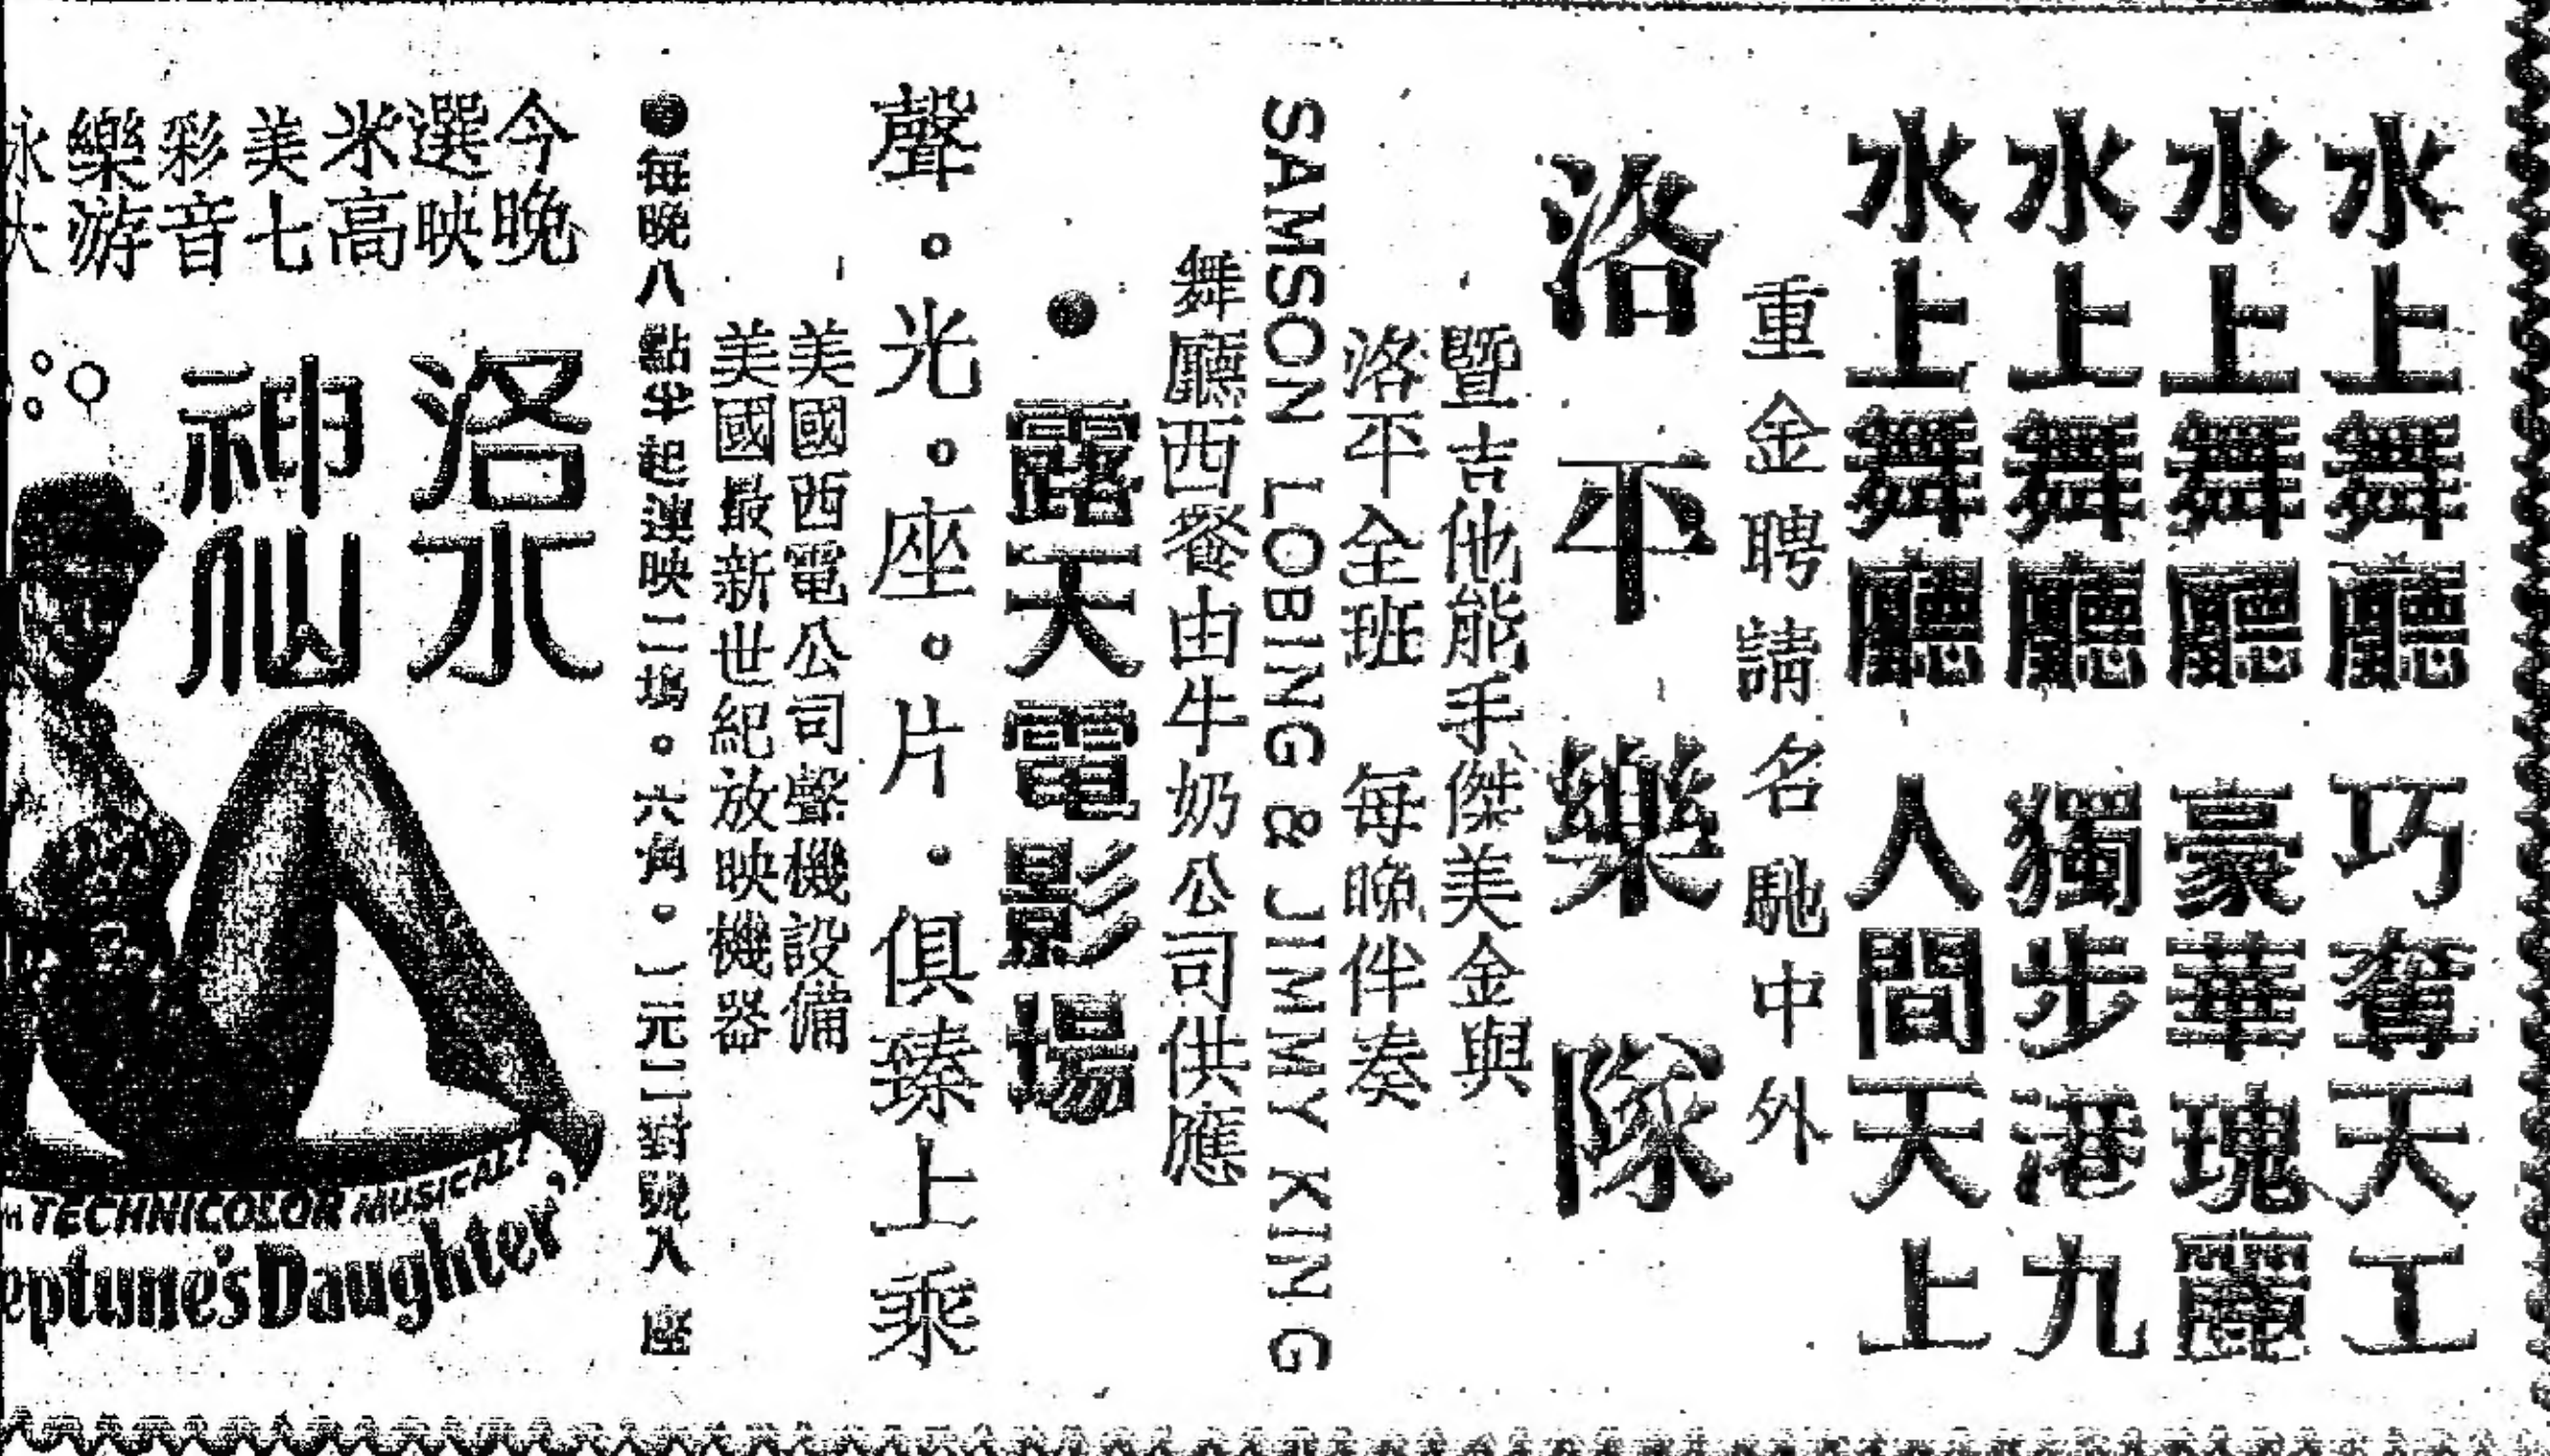 水上舞廳 巧奪天工
水上舞廳 豪華瑰麗
水上舞廳 獨步港九
水上舞廳 人間天上
重金聘請名馳中外
洛平樂隊
暨吉他能手傑美金與
洛平全班 每晚伴奏
SAMSON LOBING & JIMMY KING
舞廳西餐由牛奶公司供應
●露天電影場
聲。光。座。片。俱臻上乘
美國西電公司聲機設備
美國最新世紀放映機器
●每晚八點半起連映二場。六角。一元二對號入座
今晚
選映
米高
美七
彩音
樂游
泳大
洛水
神仙
TECHNICOLOR MUSICAL!
eptune's Daughter"